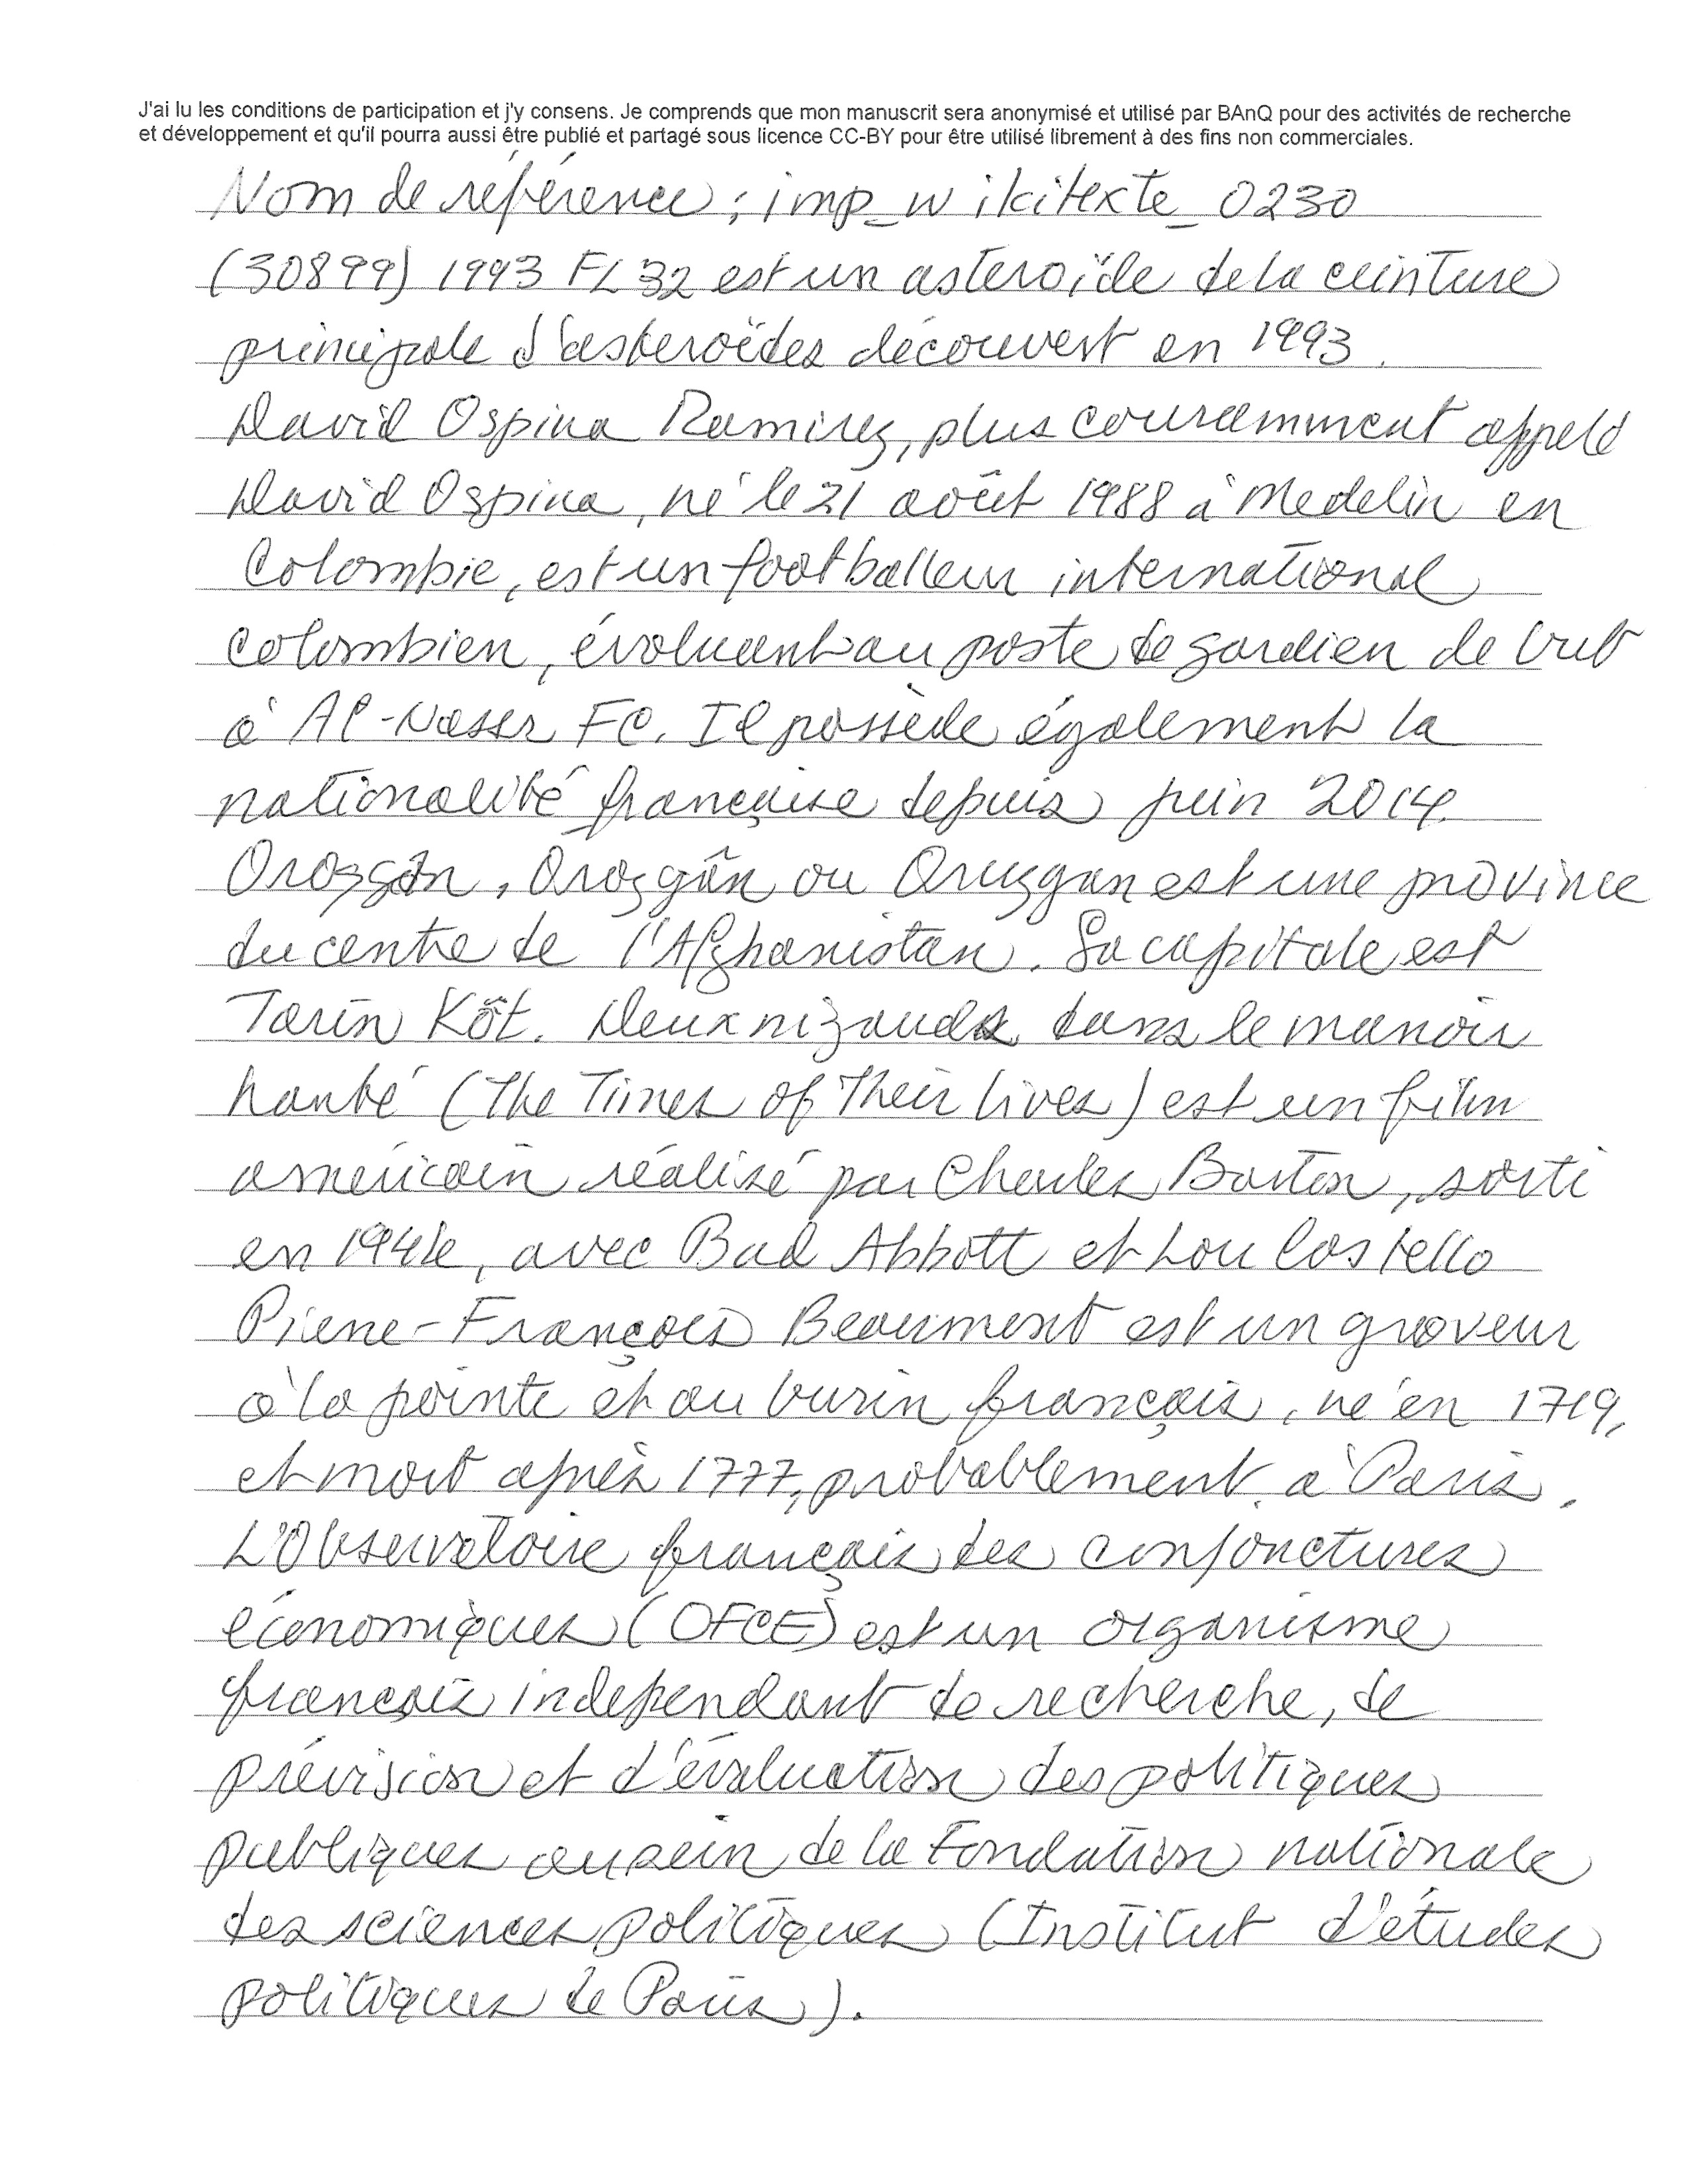 J'ai lu les conditions de participation et j'y consens. Je comprends que mon manuscrit sera anonymisé et utilisé par BAnQ pour des activités de recherche
et développement et qu'il pourra aussi être publié et partagé sous licence CC-BY pour être utilisé librement à des fins non commerciales.
Nom de référence : imp_wikitexte_0230
(30899) 1993 FL32 est un asteroïde de la ceinture
principale d'asteroïdes découvert en 1993.
David Ospina Ramirez, plus couramment appelé
David Ospina, né le 21 août 1988 à Medelin en
Colombie, est un footballeur international
colombien, évoluant au poste de gardien de but
à Al-Nassr FC. Il possède également la
nationalité française depuis juin 2014.
Orozgân, Orozgân ou Oruzgan est une province
du centre de l'Afghanistan. Sa capitale est
Tarin Kôt. Deux nigauds dans le manoir
hanté (The Times of Their lives) est un film
américain réalisé par Charles Barton, sorti
en 1946, avec Bud Abbott et Lou Costello
Pierre-François Beaumont est un graveur
à la pointe et au burin français, né en 1719,
et mort après 1777, probablement à Paris.
L'Observatoire français des conjonctures
économiques (OFCE) est un organisme
français independant de recherche, de
prévision et d'évaluation des politiques
publiques au sein de la Fondation nationale
des sciences politiques (Institut d'études
politiques de Paris).